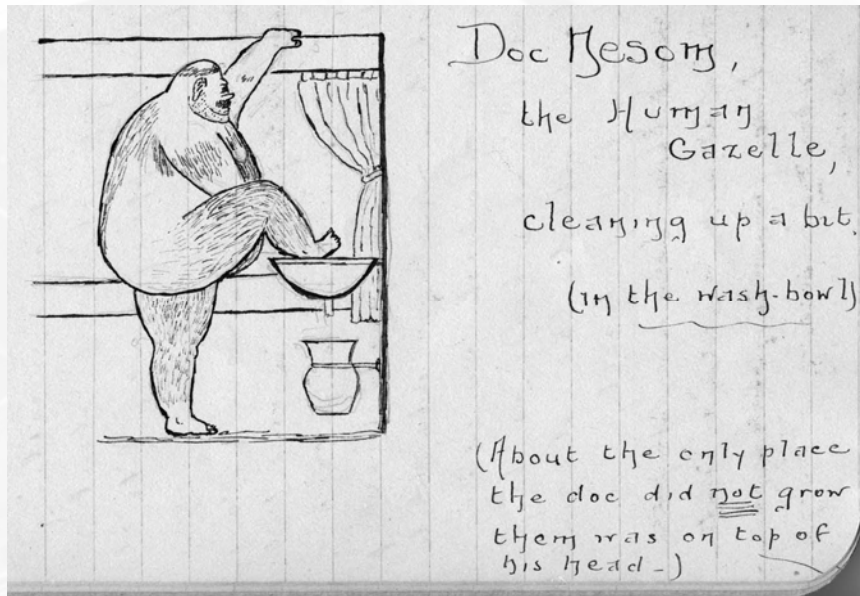 Doc Nesom,
the Human
Gazelle,
cleaning up a bit.
(in the wash-bowl)
(About the only place
the doc did not grow
them was on top of
his head-)